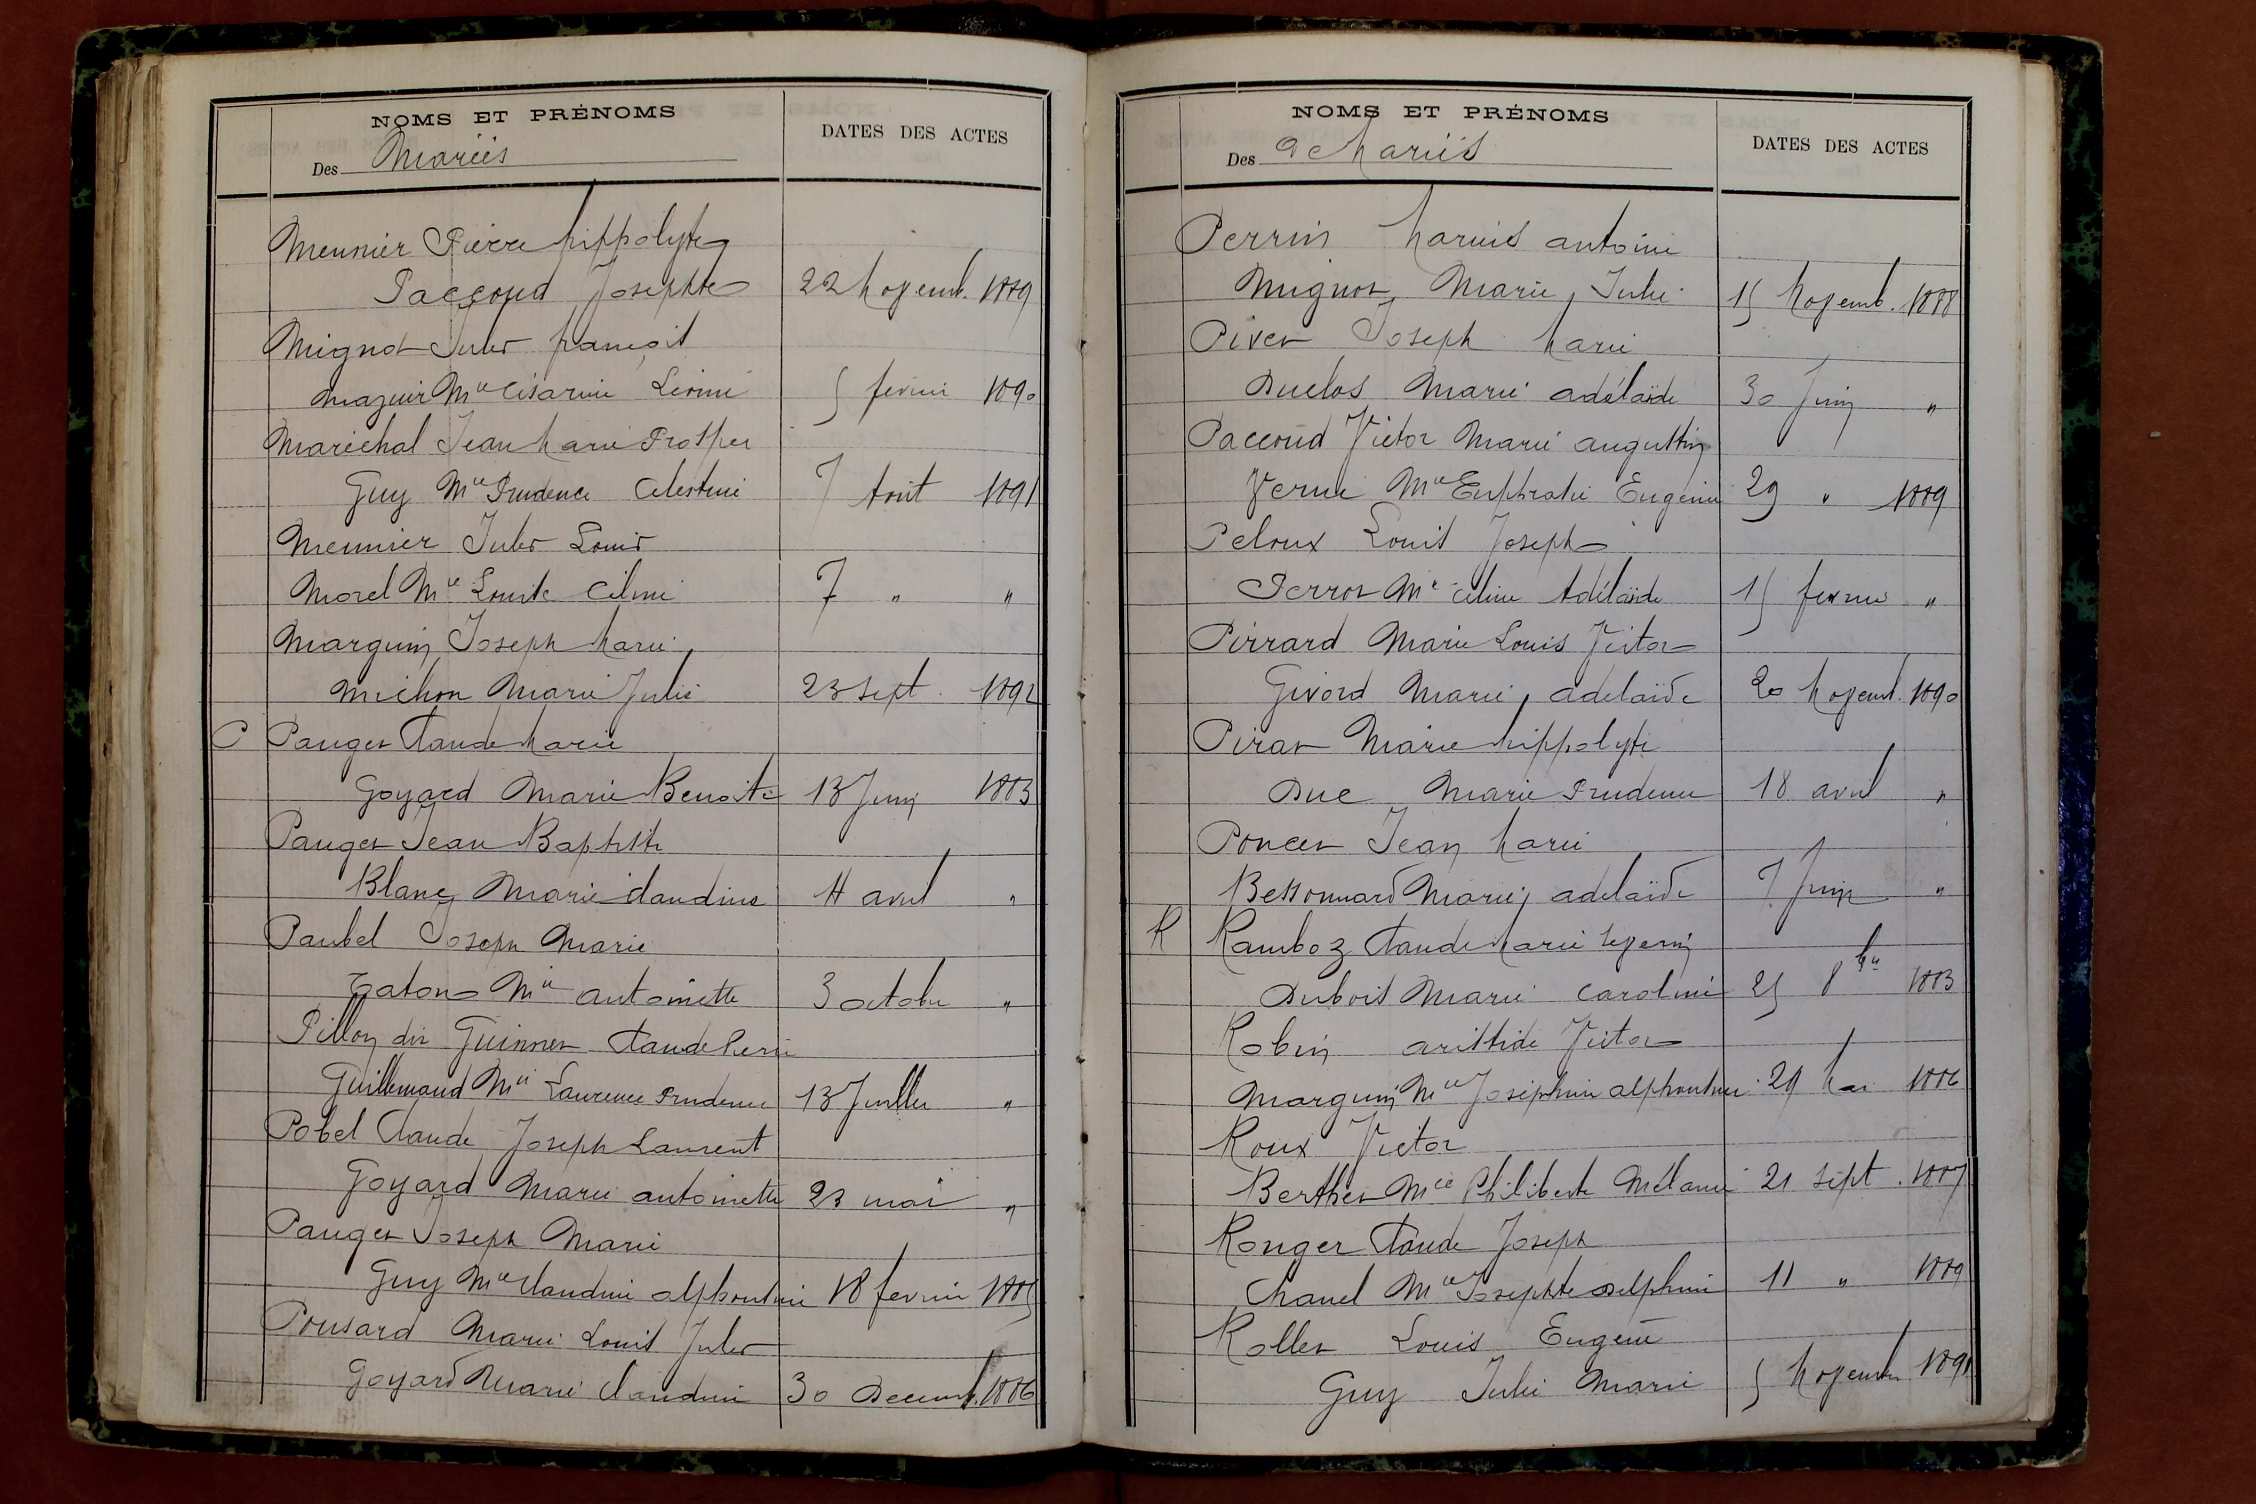 NOMS ET PRÉNOMS
Des Mariés
DATES DES ACTES
Meunier Pierre hippolyte
Paccoud Josephte 22 Novemb. 1889
Mignot Jules françois
Mazuir Mie Césarine Léonie 5 février 1890
Maréchal Jean Marie Prosper
Guy Mie Prudence Célestine 7 Août 1891
Meunier Jules Louis
Morel Mie Louise Céline 7 " "
Marguin Joseph Marie
Michon Marie Julie 23 sept. 1892
P Pauget Claude Marie
Goyard Marie Benoite 13 Juin 1883
Pauget Jean Baptiste
Blanc Marie Claudine 11 avril "
Paubel Joseph Marie
Caton Mie antoinette 3 octobre "
Pillon dit Guinnet Claude Pierre
Guillemaud Mie Laurence Prudence 13 Juillet "
Pobel Claude Joseph Laurent
Goyard Marie antoinette 23 mai "
Pauget Joseph Marie
Guy Mie Claudine alphonsine 18 fevrier 1885
Ponsard Marie Louis Jules
Goyard Marie Claudine 30 Decemb. 1886
NOMS ET PRÉNOMS
Des Mariés
DATES DES ACTES
Perrin Marius antoine
Mignot Marie Julie 15 Novemb. 1888
Pivet Joseph Marie
Duclos Marie adélaïde 30 Juin "
Paccoud Victor Marie augustin
Verne Mie Euphrasie Eugénie 29 " 1889
Peloux Louis Joseph
Perrot Mie Céline Adélaïde 15 fevrier "
Pirrard Marie Louis Victor
Givord Marie adelaïde 20 Novemb. 1890
Pirat Marie hippolyte
Duc Marie Prudence 18 avril "
Poncet Jean Marie
Bessonnard Marie adelaïde 7 Juin "
R Ramboz Claude Marie
Dubois Marie Caroline 25 8bre 1883
Robin aristide Victor
Marguin Mie Joséphine alphonsine 29 Mai 1886
Roux Victor
Berthet Mie Philiberte Mélanie 21 sept. 1887
Ronger Claude Joseph
Chanel Mie Josephte Delphine 11 " 1889
Rollet Louis Eugène
Guy Julie Marie 5 Novembre 1891